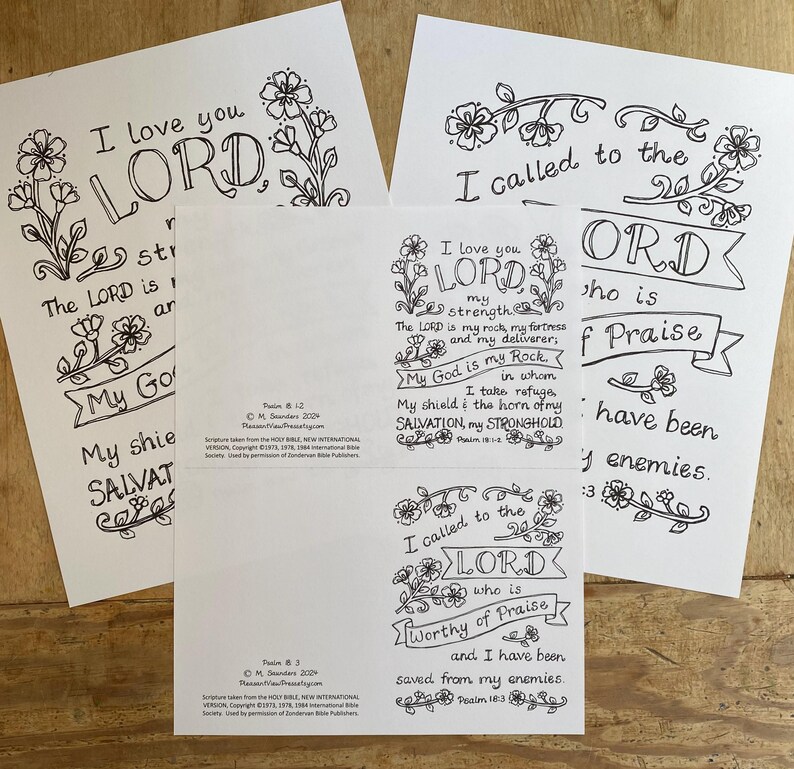 I love you
LORD,
str
The LORD is
an
My God
My shie
SALVAT
I called to the
ORD
ho is
f Praise
I have been
y enemies.
:3
I love you
LORD,
my
strength.
The LORD is my rock, my fortress
and my deliverer;
My God is my Rock,
in whom
I take refuge,
My shield & the horn of my
SALVATION, my STRONGHOLD.
Psalm 18:1-2
Psalm 18: 1-2
© M. Saunders 2024
PleasantViewPress.etsy.com
Scripture taken from the HOLY BIBLE, NEW INTERNATIONAL
VERSION, Copyright ©1973, 1978, 1984 International Bible
Society. Used by permission of Zondervan Bible Publishers.
I called to the
LORD
who is
Worthy of Praise
and I have been
saved from my enemies.
Psalm 18:3
Psalm 18: 3
© M. Saunders 2024
PleasantViewPress.etsy.com
Scripture taken from the HOLY BIBLE, NEW INTERNATIONAL
VERSION, Copyright ©1973, 1978, 1984 International Bible
Society. Used by permission of Zondervan Bible Publishers.